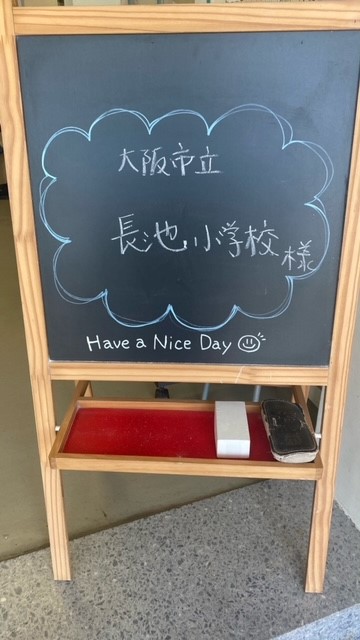 大阪市立
長池小学校様
Have a Nice Day